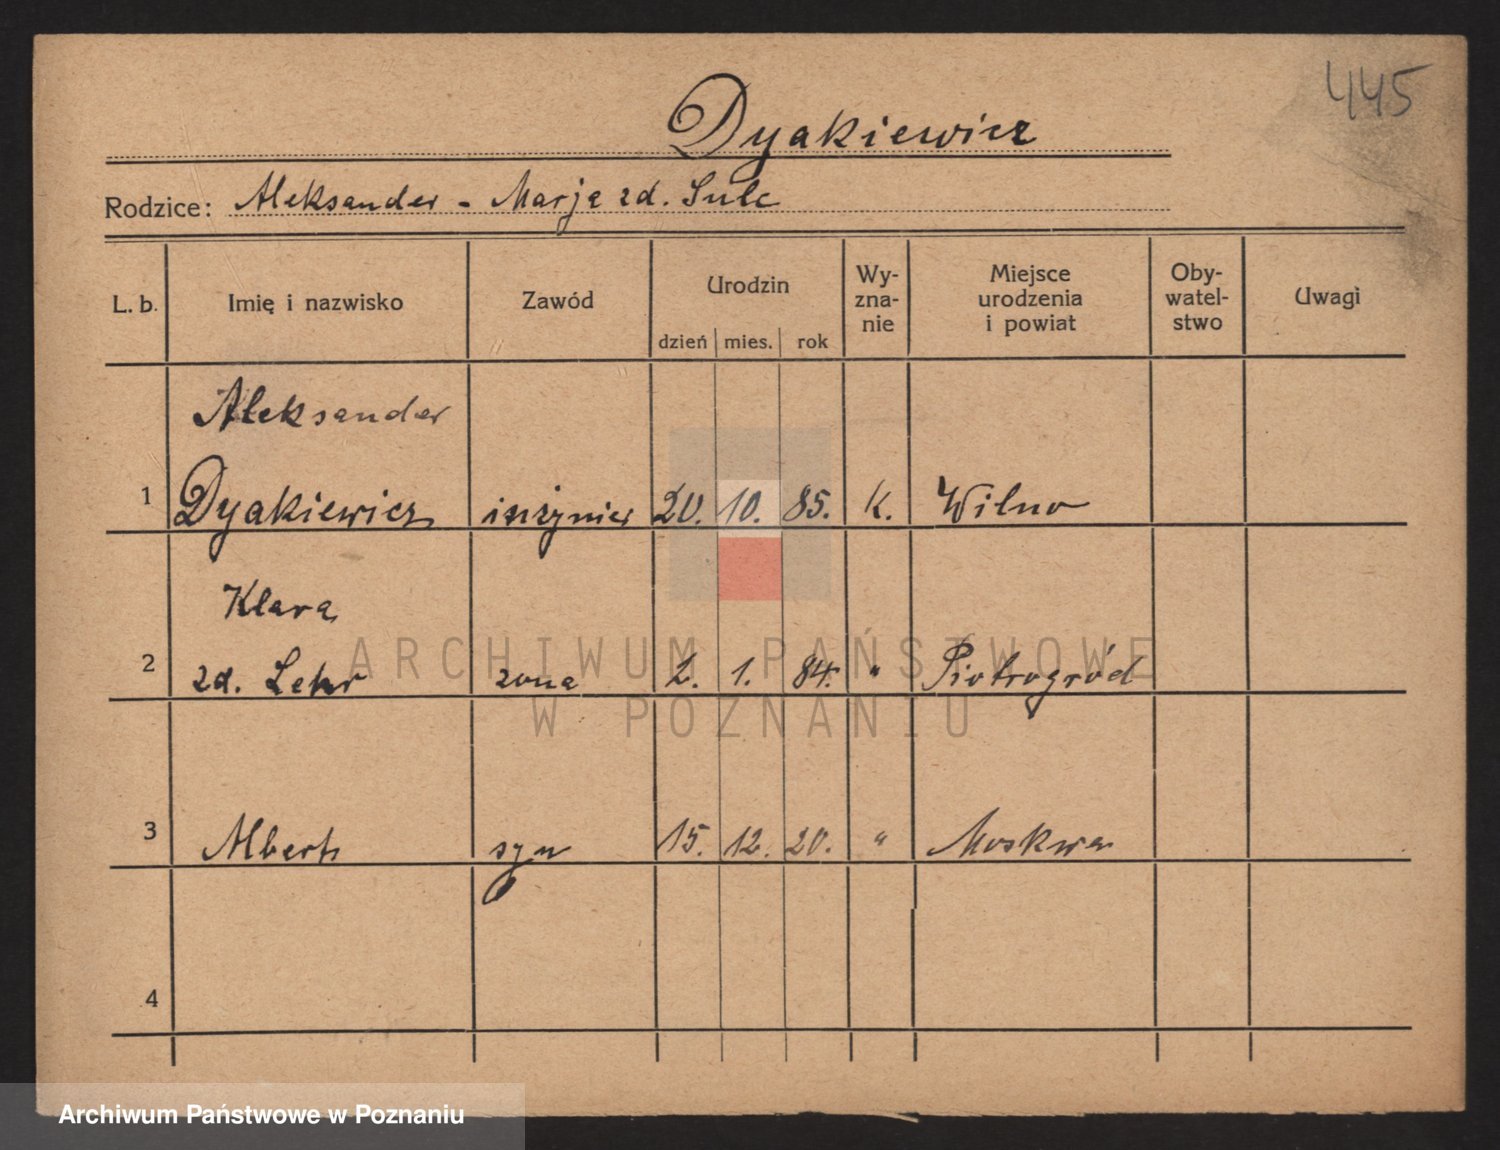 445
Dyakiewicz
Rodzice: Aleksander - Marja zd. Sulc
L. b. Imię i nazwisko Zawód Urodzin Wy-zna-nie Miejsce urodzenia i powiat Oby-watel-stwo Uwagi
dzień mies. rok
Aleksander
1 Dyakiewicz inżynier 20. 10. 85. K. Wilno
Klara
2 zd. Lehr żona 2. 1. 84. " Piotrogród
3 Albert syn 15. 12. 20. " Moskwa
4
ARCHIWUM PAŃSTWOWE
W POZNANIU
Archiwum Państwowe w Poznaniu